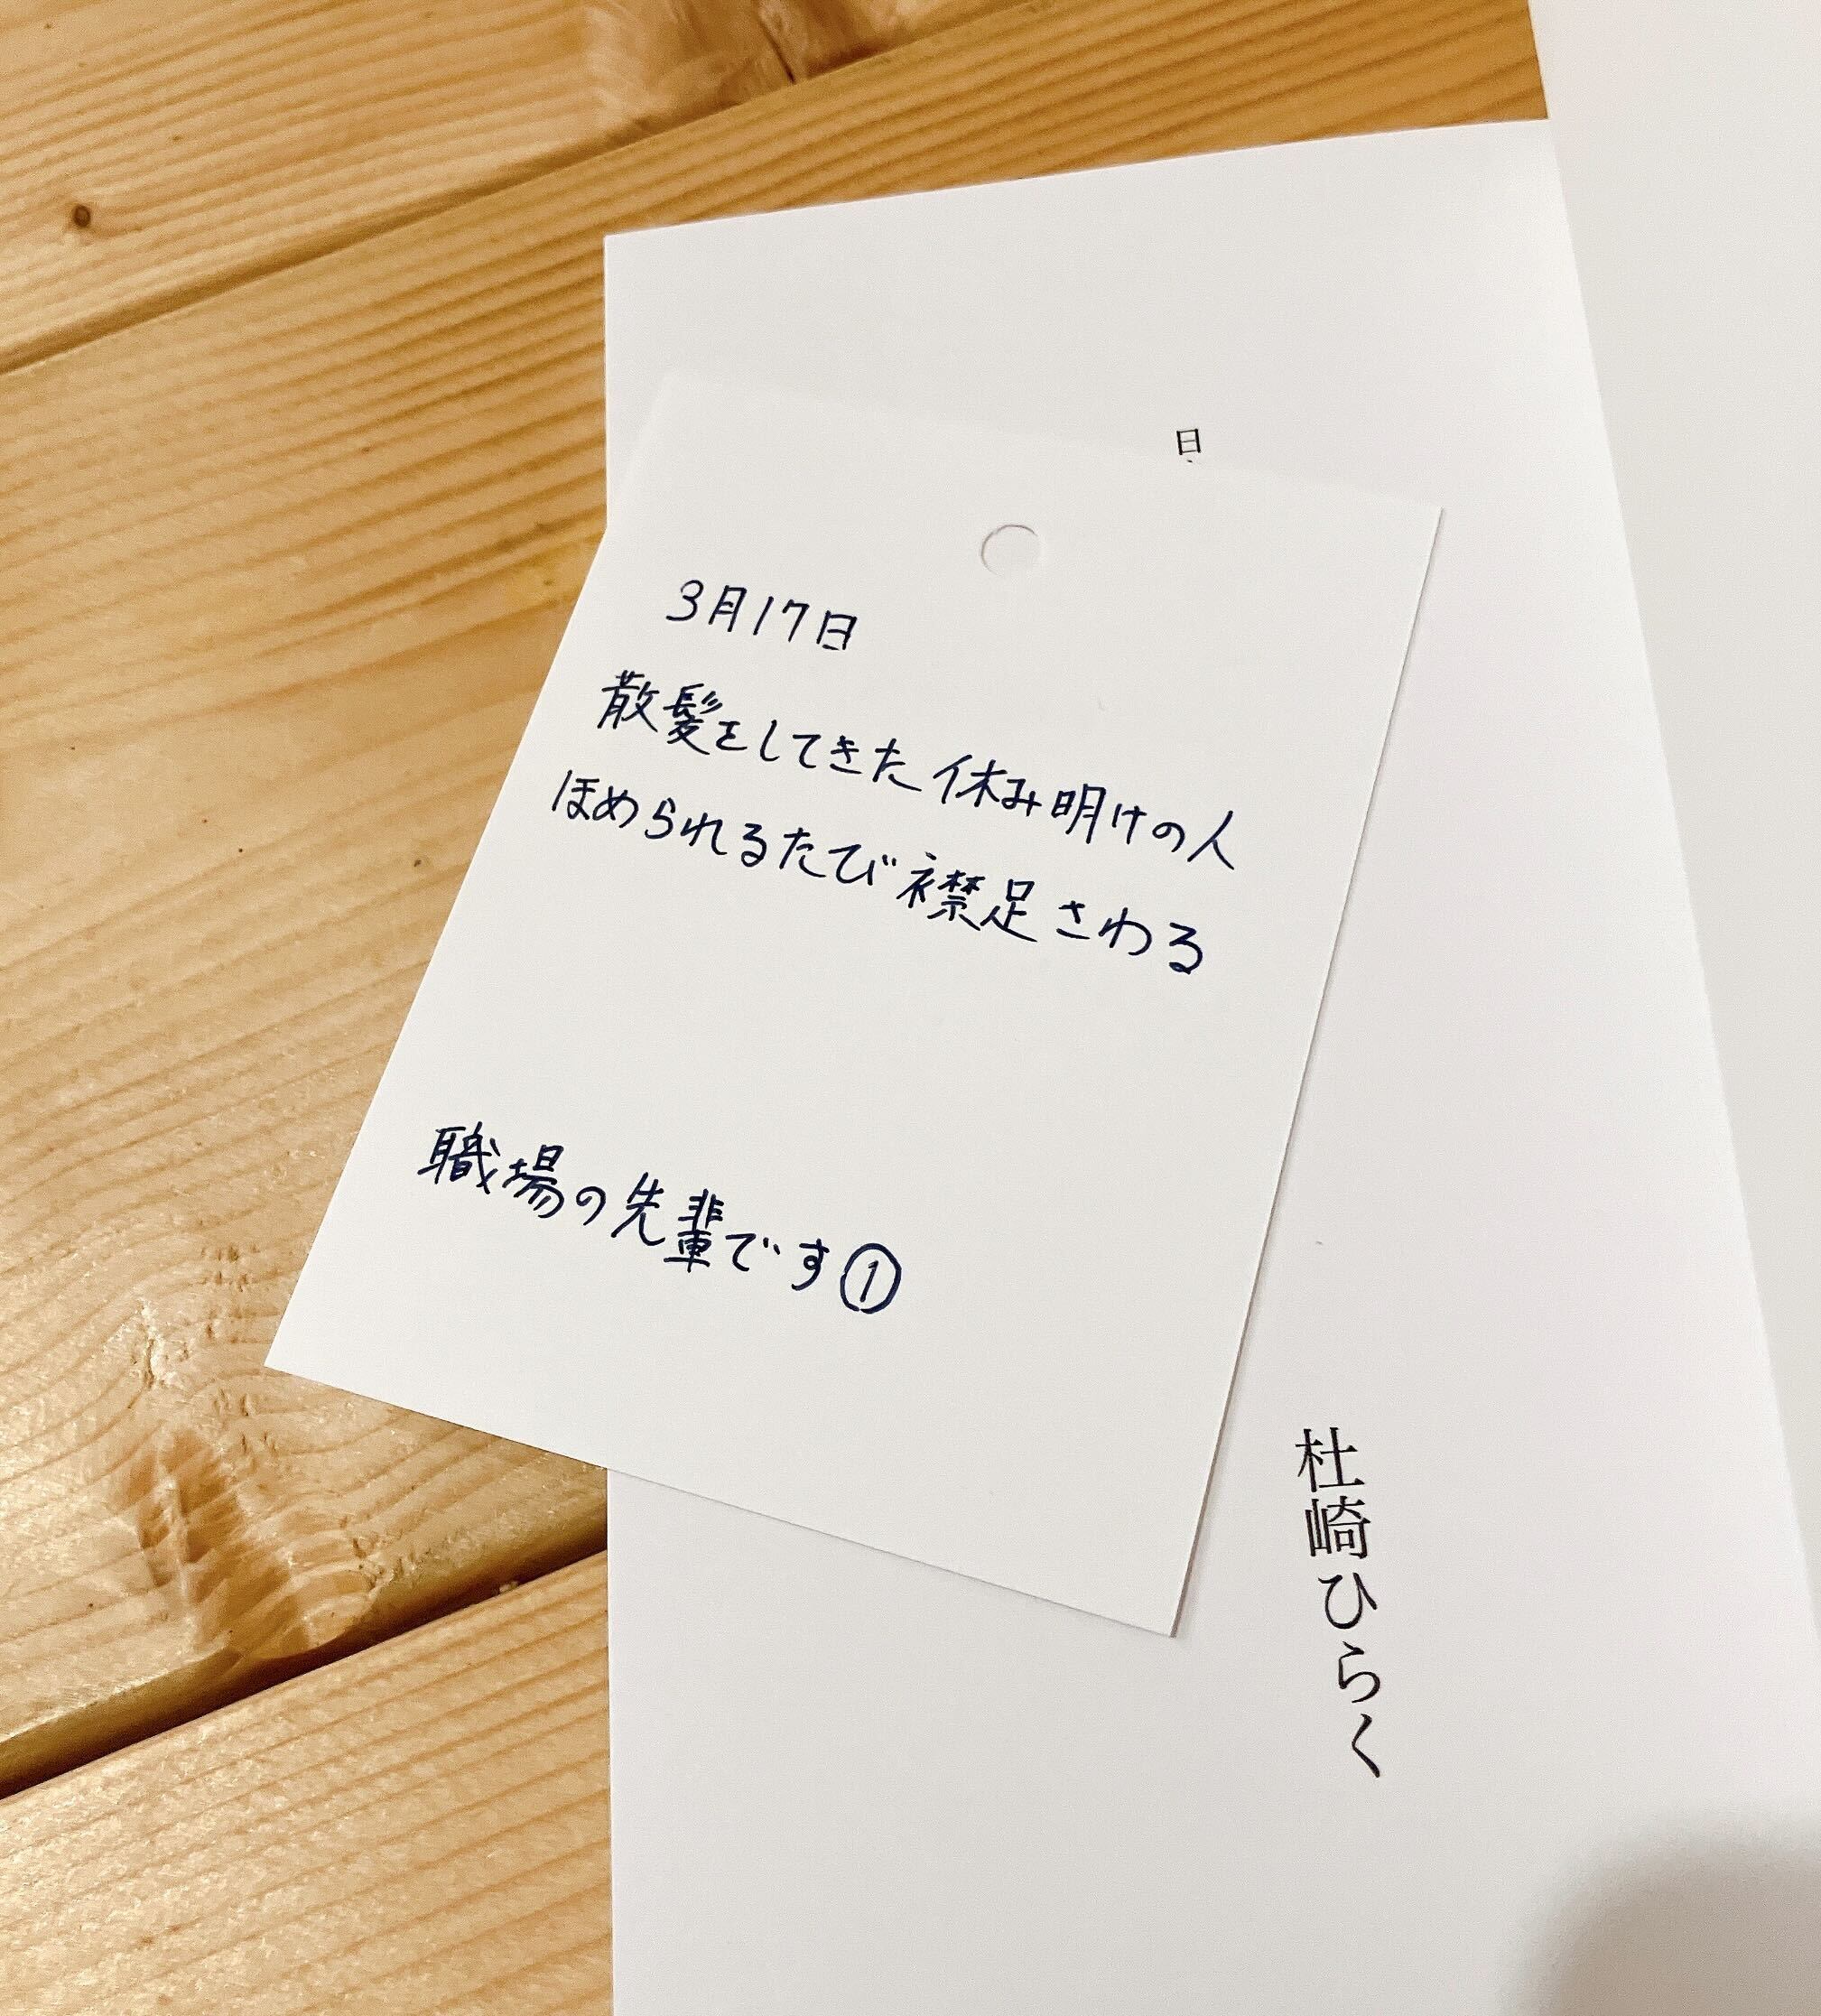 日
3月17日
散髪をしてきた休み明けの人
ほめられるたび襟足さわる
職場の先輩です①
杜崎ひらく